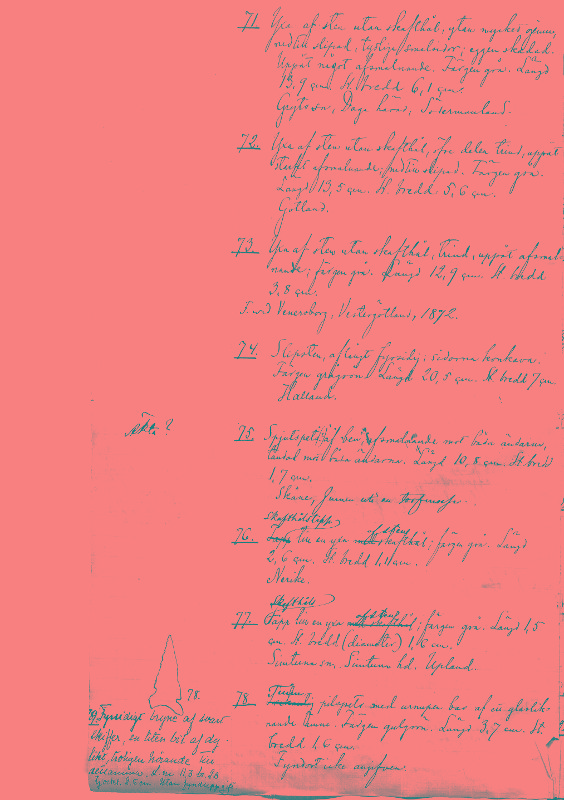 71. Yxa af sten utan skafthål, ytan mycket ojemn,
nedtill slipad, tydliga smalsidor; eggen skadad.
Uppåt något afsmalnande. Färgen grå. Längd
13,9 cm. St. bredd 6,1 cm.
Gryts sn, Daga härad, Södermanland.
72. Yxa af sten utan skafthål, öfre delen trind, uppåt
starkt afsmalnande; nedtill slipad. Färgen grå.
Längd 13,5 cm. St. bredd 5,6 cm.
Gotland.
73. Yxa af sten utan skafthål, trind, uppåt afsmal-
nande; färgen grå. Längd 12,9 cm. St. bredd
3,8 cm.
F. vid Venersborg, Vestergötland, 1872.
74. Slipsten, aflångt fyrsidig; sidorna konkava.
Färgen grågrön. Längd 20,5 cm. St. bredd 7 cm.
Halland.
?
75. Spjutspets af ben, afsmalnande mot båda ändarna,
mot båda ändarna. Längd 10,8 cm. St. bredd
1,7 cm.
Skåne, funnen uti en torfmosse.
skafthålstapp
76. Tapp till en yxa med skafthål; färgen grå. Längd
2,6 cm. St. bredd 1,11 cm.
Nerike.
Skafthåls
77. Tapp till en yxa med skafthål; färgen grå. Längd 1,5
cm. St. bredd (diameter) 1,6 cm.
Simtuna sn, Simtuna hd. Upland.
78.
78. pilspets med urnupen bas af en glaslik-
nande ämne. Färgen gulgrå. Längd 3,7 cm. St.
bredd 1,6 cm.
Fyndort icke angifven.
79. Fyrsidigt bryne af svart
skiffer, en liten bit af dy-
likt, troligen hörande till